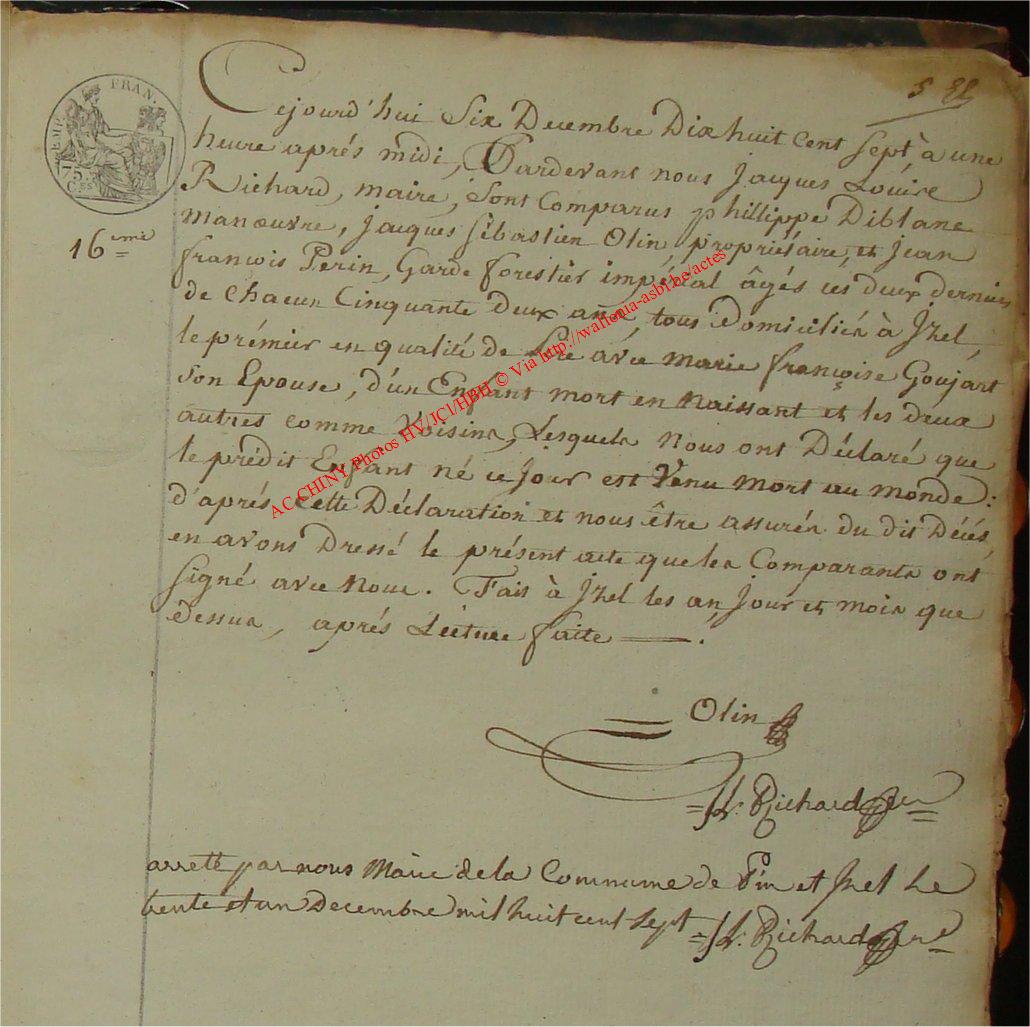 Cejourd'hui Six Decembre Dix huit Cent Sept à une
heure aprés midi, Pardevant nous Jacques Louis
Richard, maire, Sont Comparus phillippe Diblanc
manœuvre, Jacques Sébastien Olin, propriétaire, et Jean
françois Perin, Garde forestier impérial âgés ces deux derniers
de Chacun Cinquante deux ans, tous Domiciliés à Izel,
le prémier en qualité de Pere avec marie françoise Goujart
Son Epouse, d'un Enfant mort en Naissant et les deux
autres comme Voisins, Lesquels Nous ont Déclaré que
le prédit Enfant né ce Jour est Venu mort au monde :
d'aprés cette Déclaration et nous être assurés du dit Décés,
en avons Dressé le présent acte que les Comparants ont
signé avec Nous. Fait à Izel les an, Jour et mois que
dessus, aprés Lecture faite .
FRAN.
EMP.
75.
Ces
16 eme
Olin
JL. Richard
arretté par nous Maire de la Commune de Pin et Izel Le
trente et un Decembre mil huit cent Sept
JL. Richard
AC CHINY Photos HV/JCl/HBH © Via http://wallonia-asbl.be/actes